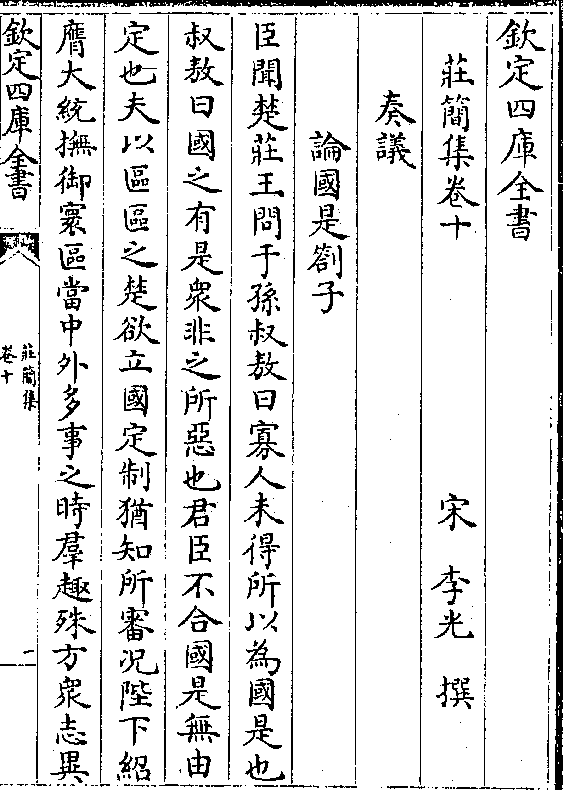 欽定四庫全書
莊簡集卷十
宋 李光 撰
奏議
論國是劄子
臣聞楚莊王問于孫叔敖曰寡人未得所以為國是也
叔敖曰國之有是衆非之所惡也君臣不合國是無由
定也夫以區區之楚欲立國定制猶知所審况陛下紹
膺大統撫御寰區當中外多事之時羣趣殊方衆志異
欽定四庫全書
莊簡集
卷十
一